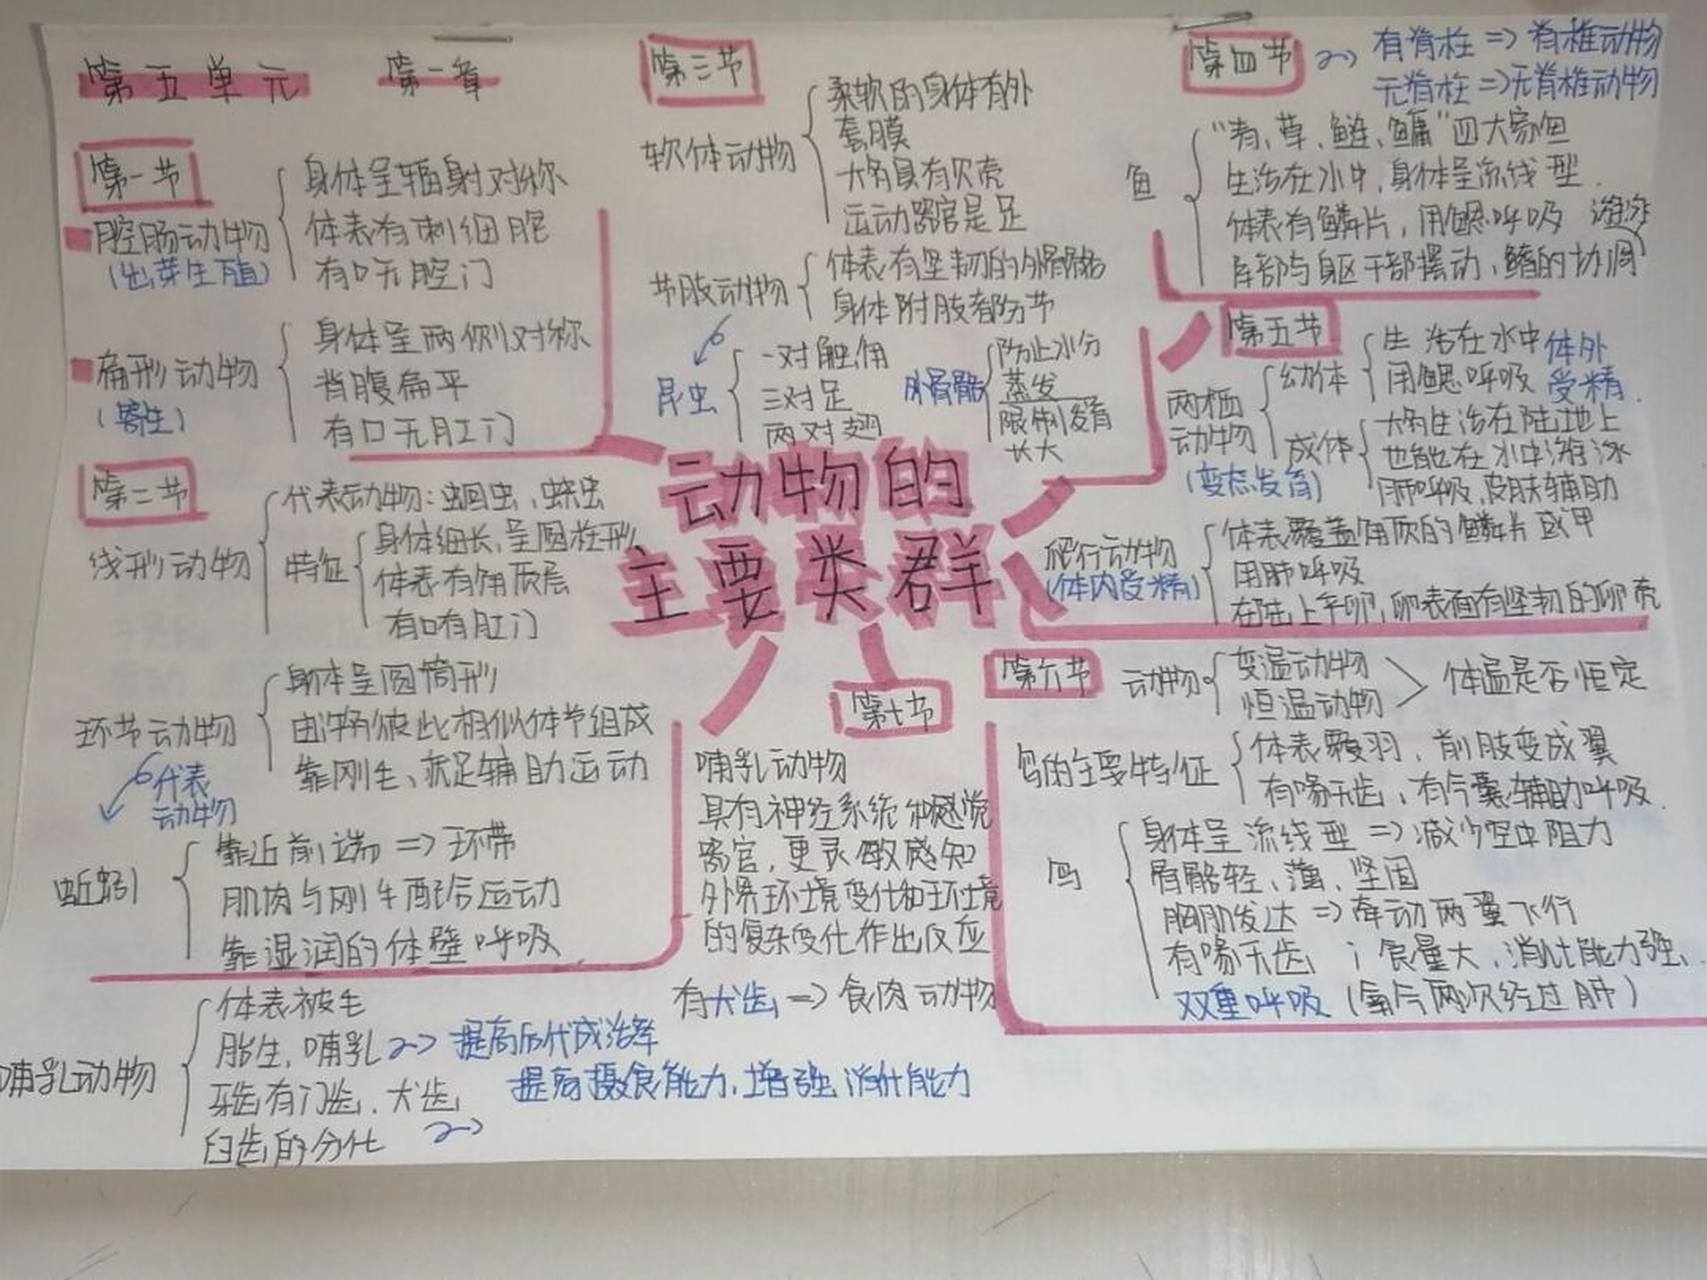 第五单元 第一章
动物的
主要类群
第一节
腔肠动物
(出芽生殖)
身体呈辐射对称
体表有刺细胞
有口无肛门
扁形动物
(寄生)
身体呈两侧对称
背腹扁平
有口无肛门
第二节
线形动物
代表动物:蛔虫,蛲虫
特征
身体细长,呈圆柱形
体表有角质层
有口有肛门
环节动物
身体呈圆筒形
由许多彼此相似体节组成
靠刚毛、疣足辅助运动
代表
动物
蚯蚓
靠近前端 => 环带
肌肉与刚毛配合运动
靠湿润的体壁呼吸
第三节
软体动物
柔软的身体有外
套膜
大多具有贝壳
运动器官是足
节肢动物
体表有坚韧的外骨骼
身体附肢都分节
昆虫
一对触角
三对足
两对翅
外骨骼
防止水分
蒸发
限制发育
长大
第四节
有脊柱 => 有椎动物
无脊柱 => 无脊椎动物
鱼
"青、草、鲢、鳙"四大家鱼
生活在水中,身体呈流线型.
体表有鳞片,用鳃呼吸 游泳
尾部与躯干部摆动,鳍的协调
第五节
两栖
动物
(变态发育)
幼体
生活在水中
用鳃呼吸
体外
受精.
成体
大多生活在陆地上
也能在水中游泳
用肺呼吸,皮肤辅助
爬行动物
(体内受精)
体表覆盖角质的鳞片或甲
用肺呼吸
在陆上产卵,卵表面有坚韧的卵壳
第六节
动物
变温动物
恒温动物
体温是否恒定
鸟的主要特征
体表覆羽、前肢变成翼
有喙无齿、有气囊辅助呼吸.
鸟
身体呈流线型 => 减少空中阻力
骨骼轻、薄、坚固
胸肌发达 => 牵动两翼飞行
有喙无齿;食量大,消化能力强.
双重呼吸(氧气两次经过肺)
第七节
哺乳动物
具有神经系统和感觉
器官,更灵敏感知
外界环境变化和环境
的复杂变化作出反应
有犬齿 => 食肉动物
哺乳动物
体表被毛
胎生,哺乳
提高后代成活率
牙齿有门齿、犬齿
臼齿的分化
提高摄食能力,增强消化能力